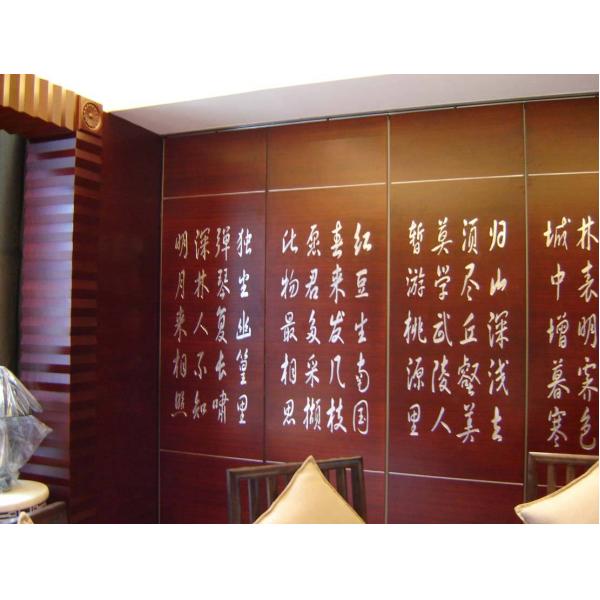 林表明霁色
城中增暮寒
归山深浅去
须尽丘壑美
莫学武陵人
暂游桃源里
红豆生南国
春来发几枝
愿君多采撷
此物最相思
独坐幽篁里
彈琴复长啸
深林人不知
明月来相照